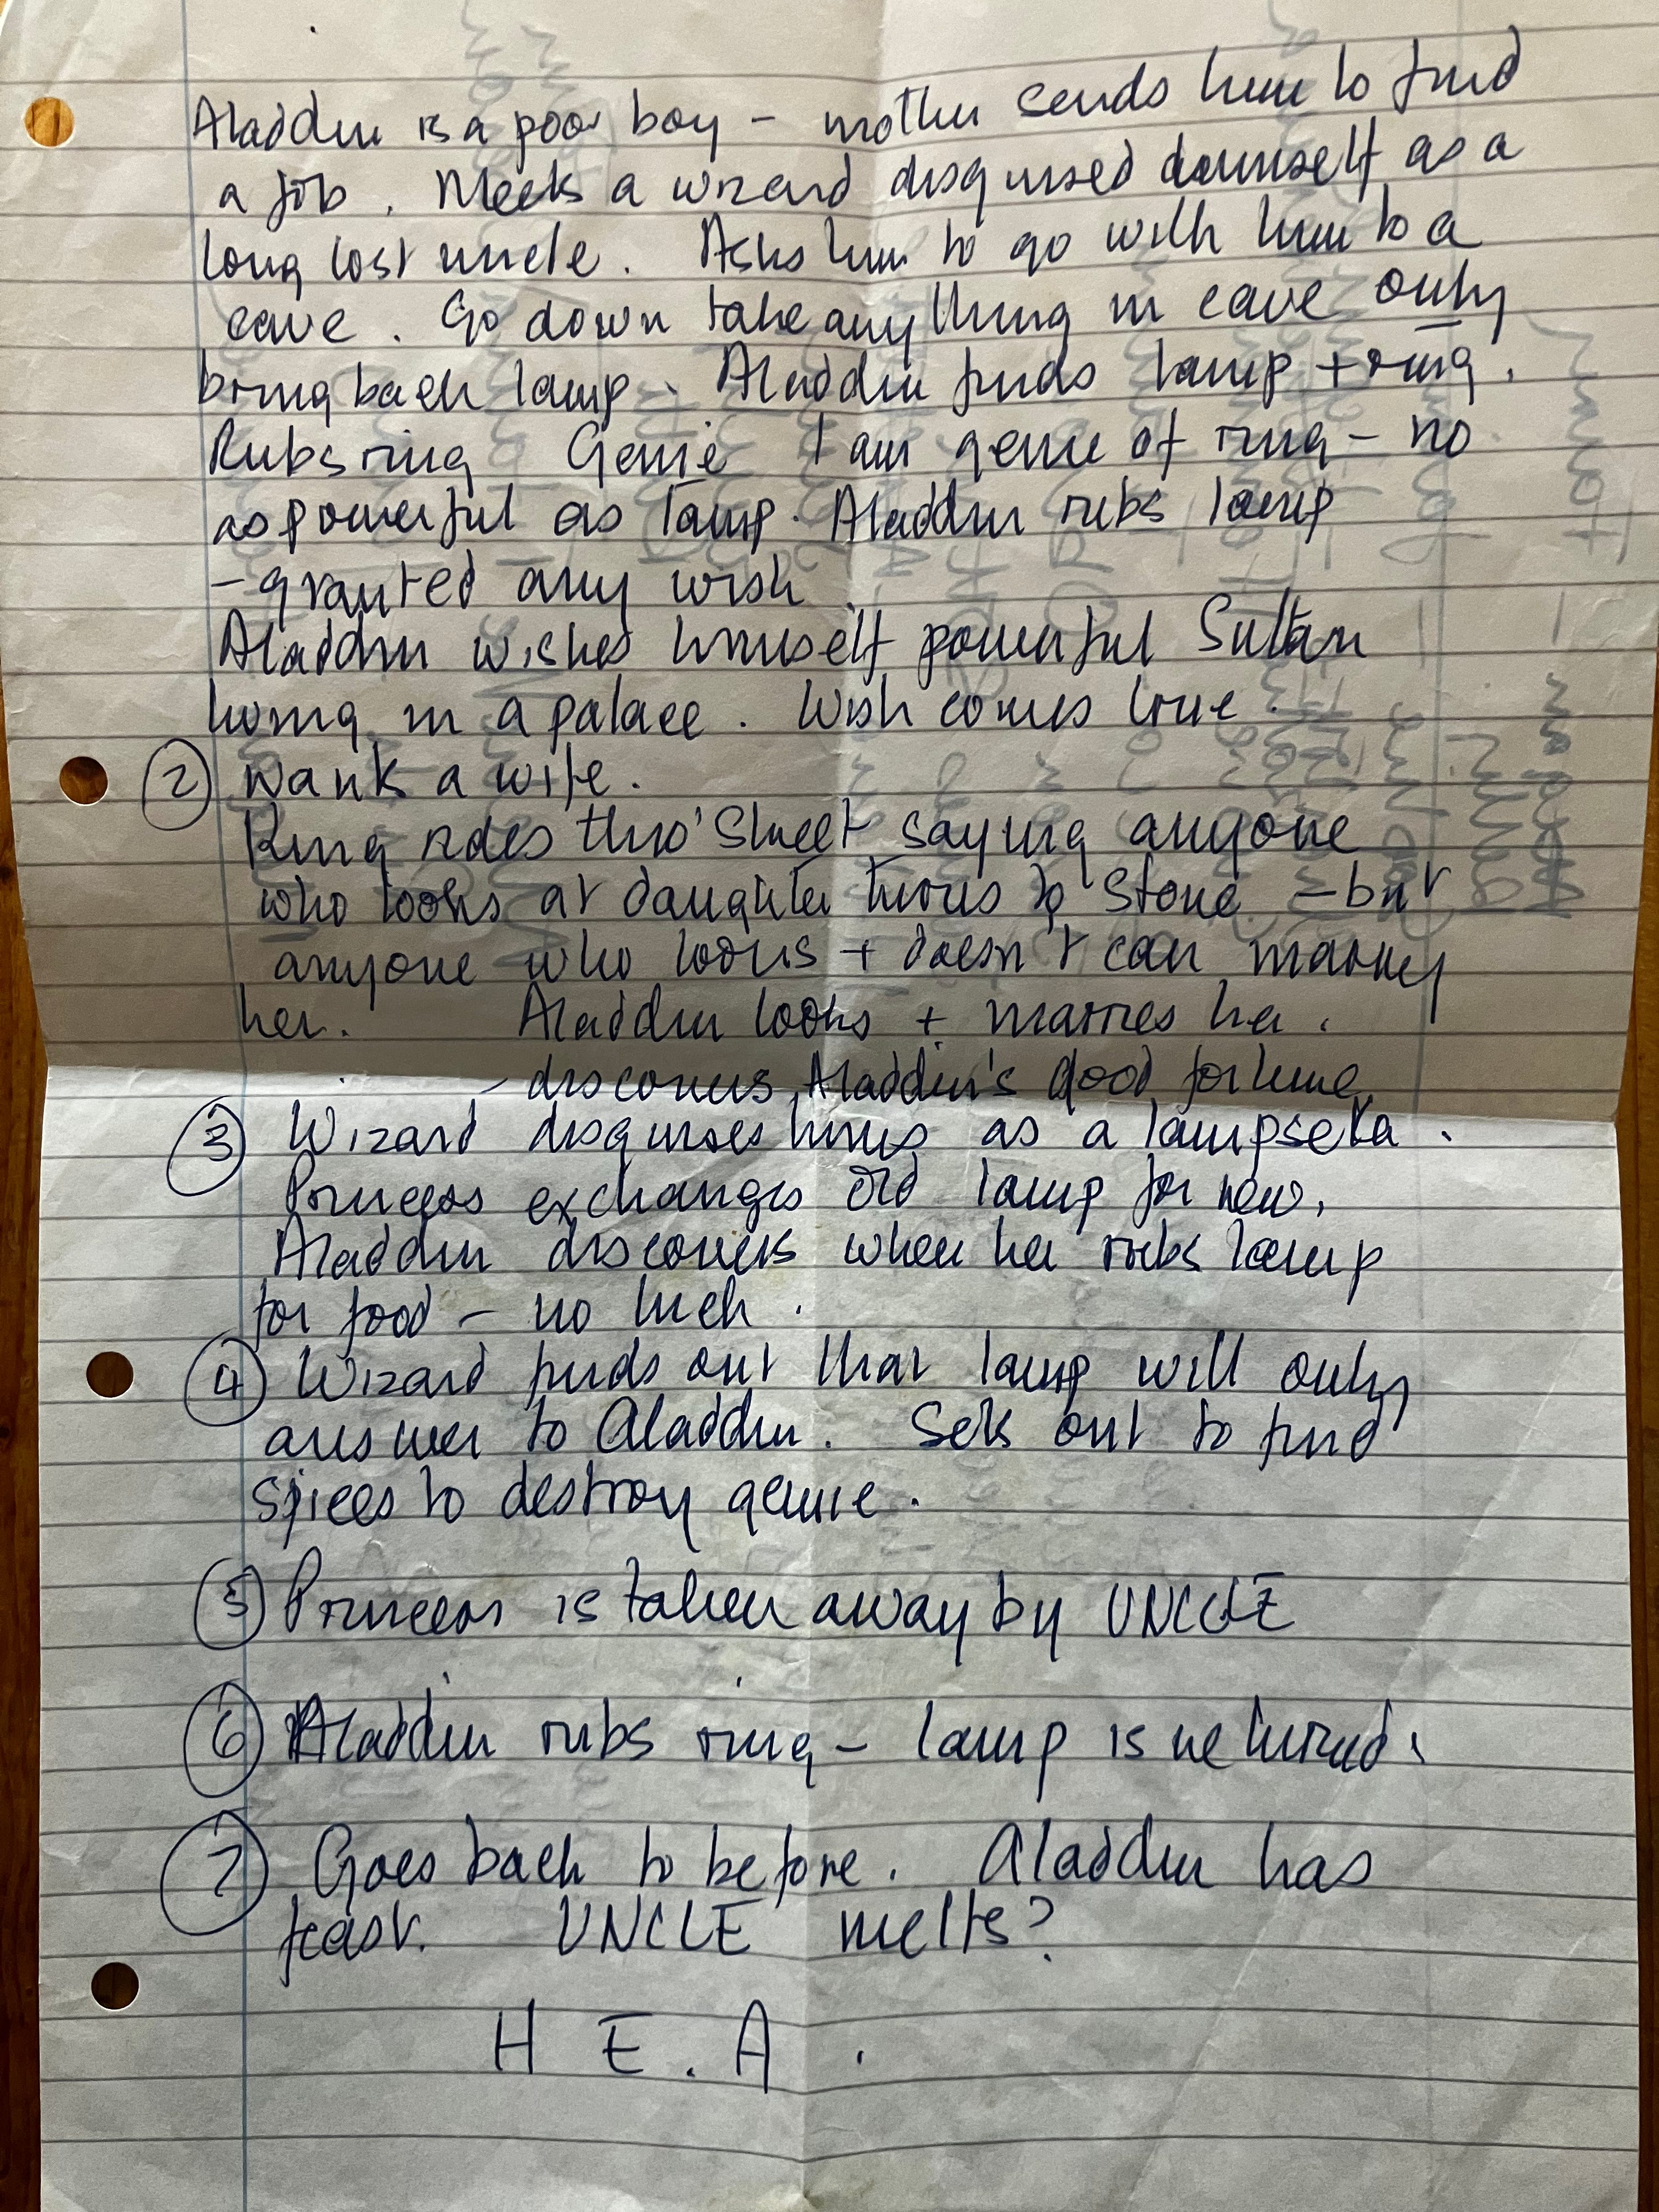 Aladdin is a poor boy - mother sends him to find
a job. Meets a wizard disguised as a
long lost uncle. Asks him to go with him to a
cave. Go down take anything in cave only
bring back lamp. Aladdin finds lamp + ring.
Rubs ring Genie I am genie of ring - no
as powerful as lamp. Aladdin rubs lamp
- granted any wish
Aladdin wishes himself powerful Sultan
living in a palace. Wish comes true.
② Wants a wife.
King rides thro' street saying anyone
who looks at daughter turns to stone - but
anyone who looks + doesn't can marry
her. Aladdin looks + marries her.
- discovers Aladdin's good fortune
③ Wizard disguises hims as a lampsella.
Princess exchanges old lamp for new.
Aladdin discovers when her rubs lamp
for food - no luck.
④ Wizard finds out that lamp will only
answer to Aladdin. Sets out to find
spices to destroy genie.
⑤ Princess is taken away by UNCLE
⑥ Aladdin rubs ring - lamp is returned.
⑦ Goes back to before. Aladdin has
feast. UNCLE melts?
H E. A.